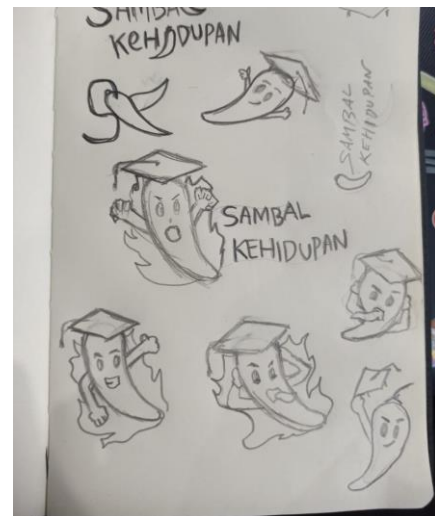 SAMBAL
KEHIDUPAN
SK
SAMBAL
KEHIDUPAN
SAMBAL
KEHIDUPAN